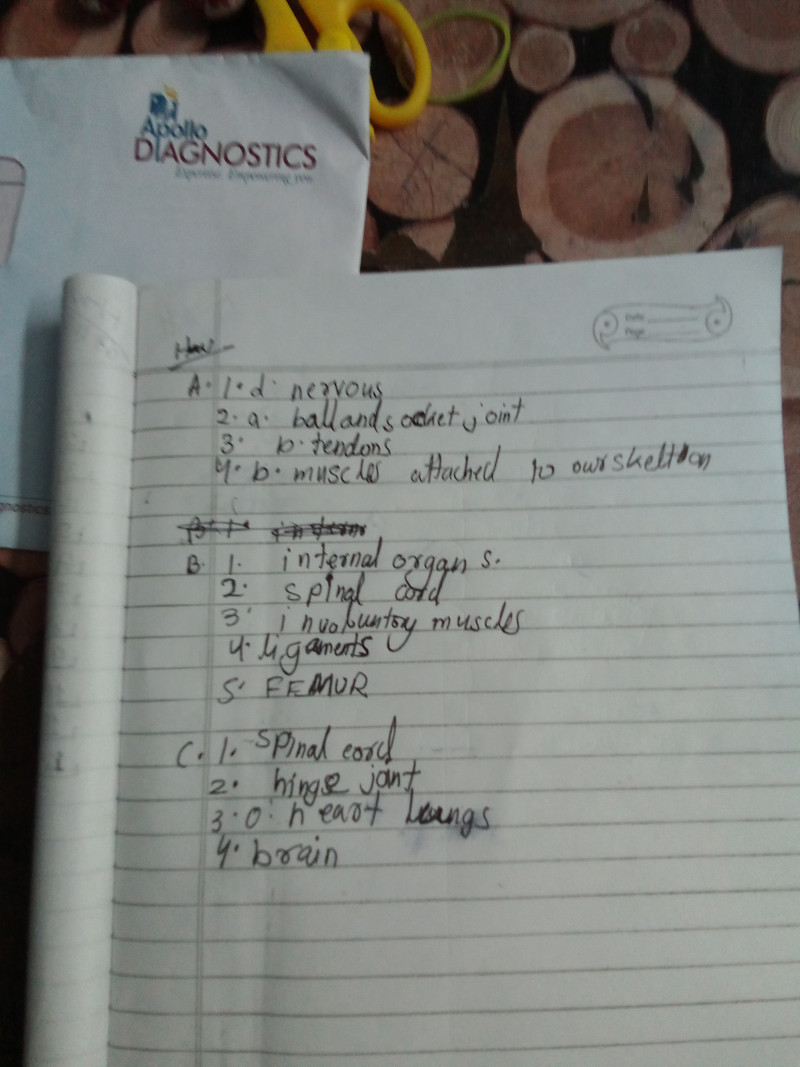 Apollo
DIAGNOSTICS
Expertise. Empowering you.
gnostics
Date
Page
A. 1. d. nervous
2. a. ball and socket joint
3. b. tendons
4. b. muscles attached to our skeltion
B. 1. internal organs.
2. spinal cord
3. involuntory muscles
4. ligaments
5. FEMUR
C. 1. spinal cord
2. hinge joint
3. 0. heart lungs
4. brain